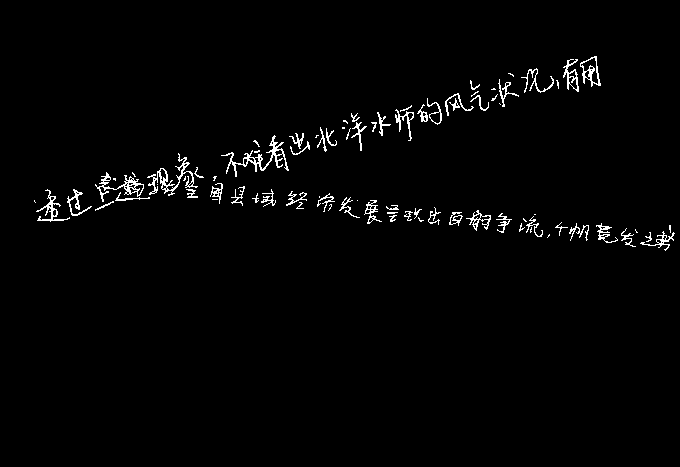 透过这种现象，不难看出北洋水师的风气状况，有用
全省县域经济发展呈现出百舸争流，千帆竞发之势